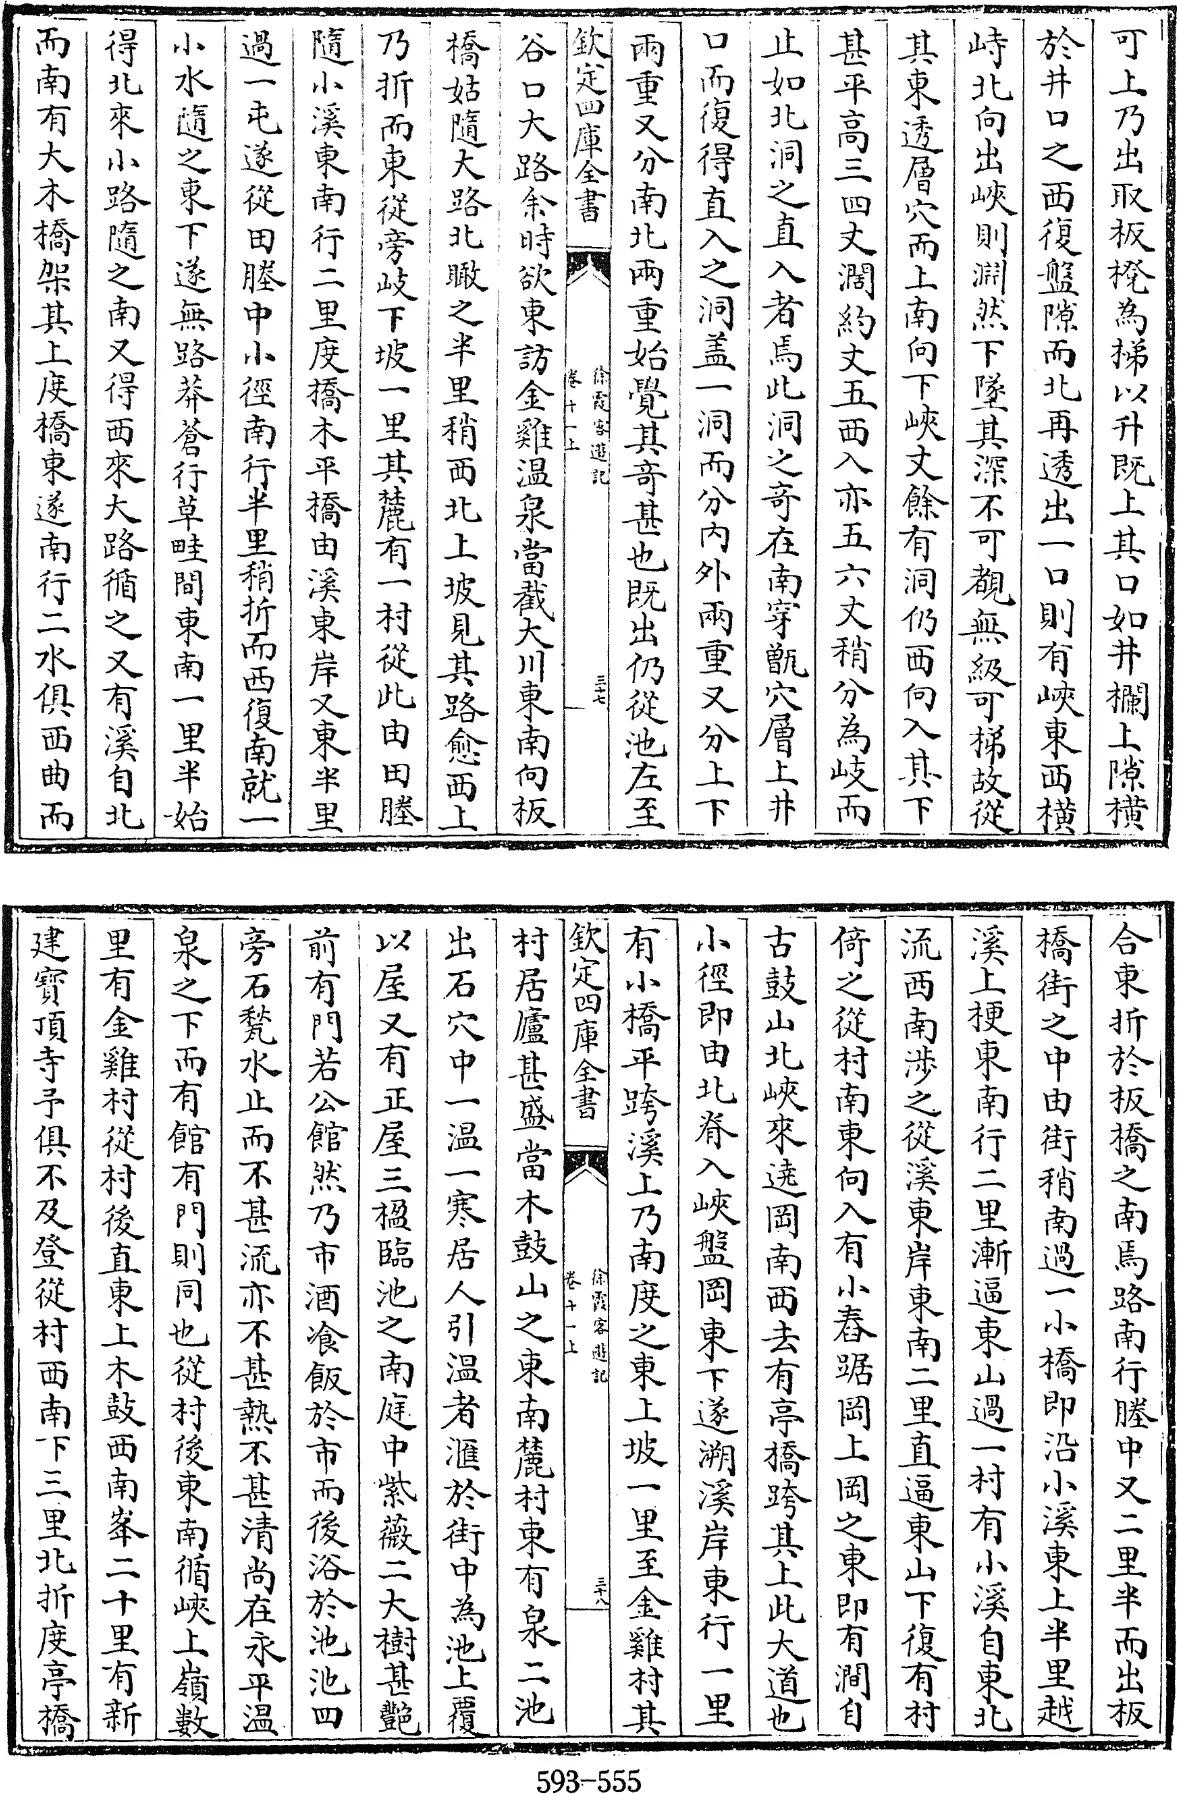 可上乃出取板櫈為梯以升既上其口如井欄上隙橫
於井口之西復盤隙而北再透出一口則有峽東西橫
峙北向出峽則淵然下墜其深不可覩無級可梯故從
其東透層穴而上南向下峽丈餘有洞仍西向入其下
甚平高三四丈濶約丈五西入亦五六丈稍分為岐而
止如北洞之直入者焉此洞之奇在南穿甑穴層上井
口而復得直入之洞盖一洞而分内外兩重又分上下
兩重又分南北兩重始覺其奇甚也既出仍從池左至
欽定四庫全書
徐霞客遊記
卷十一上
三十七
谷口大路余時欲東訪金雞温泉當截大川東南向板
橋姑隨大路北瞰之半里稍西北上坡見其路愈西上
乃折而東從旁岐下坡一里其麓有一村從此由田塍
隨小溪東南行二里度橋木平橋由溪東岸又東半里
過一屯遂從田塍中小徑南行半里稍折而西復南就一
小水隨之東下遂無路莽蒼行草畦間東南一里半始
得北來小路隨之南又得西來大路循之又有溪自北
而南有大木橋架其上度橋東遂南行二水俱西曲而
合東折於板橋之南焉路南行塍中又二里半而出板
橋街之中由街稍南過一小橋即沿小溪東上半里越
溪上梗東南行二里漸逼東山過一村有小溪自東北
流西南涉之從溪東岸東南二里直逼東山下復有村
倚之從村南東向入有小舂踞岡上岡之東即有澗自
古鼓山北峽來遶岡南西去有亭橋跨其上此大道也
小徑即由北脊入峽盤岡東下遂溯溪岸東行一里
有小橋平跨溪上乃南度之東上坡一里至金雞村其
欽定四庫全書
徐霞客遊記
卷十一上
三十八
村居廬甚盛當木鼓山之東南麓村東有泉二池
出石穴中一温一寒居人引温者滙於街中為池上覆
以屋又有正屋三楹臨池之南庭中紫薇二大樹甚艷
前有門若公館然乃市酒飡飯於市而後浴於池池四
旁石甃水止而不甚流亦不甚熱不甚清尚在永平温
泉之下而有館有門則同也從村後東南循峽上嶺數
里有金雞村從村後直東上木鼓西南峯二十里有新
建寶頂寺予俱不及登從村西南下三里北折度亭橋
593-555